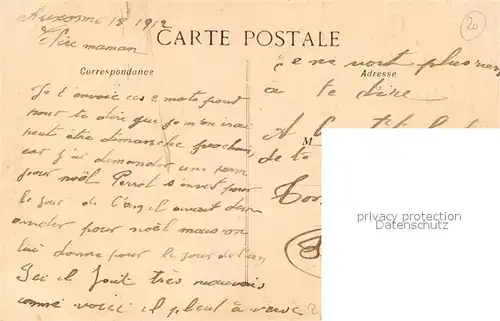 Auxonne 18 1912
Chère maman
CARTE POSTALE
Correspondance
Je t'envoie ces 2 mots pour
pour te dire que je m'en irai
peut être dimanche prochain,
car j'ai demander une perm
pour noël Perrot s'envat pour
le jour de l'an il avait dem
ander pour noël mais on
lui donne pour le jour de l'an
Ici il fait très mauvais
comme voici il pleut à verse
Adresse
je ne voit plus rien
a te dire
A
M
de ta
20
privacy protection
Datenschutz